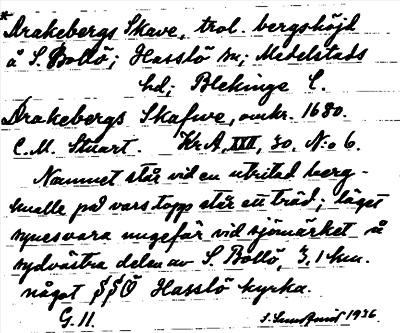 *Drakebergs Skave, trol. bergshöjd
å S. Bollö; Hasslö sn; Medelstads
hd; Blekinge L.
Drakebergs Skafwe, omkr. 1680.
C.M. Stuart. Kr A, XIII, 30, No 6.
Namnet står vid en utritad berg-
knalle på vars topp står ett träd; läget
synes vara ungefär vid sjömärket å
sydvästra delen av S. Bollö, 3,1 km.
något SSÖ Hasslö kyrka.
G. 11. 1936